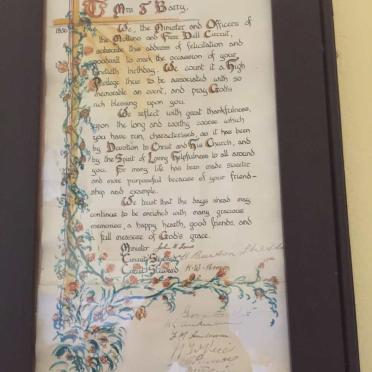 To Mrs. F Barry.
1856 1946 We, the Minister and Officers of
the and Free Dell Circuit,
subscribe this address of felicitation and
goodwill to mark the occassion of your
ninetieth birthday. We count it a High
Privilege thus to be associated with so
memorable an event, and pray God's
rich blessing upon you.
We reflect with great thankfulness,
upon the long and worthy course which
you have run, characterised, as it has been
by Devotion to Christ and His Church, and
by the Spirit of Loving Helpfulness to all around
you. For many life has been made sweeter
and more purposeful because of your friend-
ship and example.
We trust that the days ahead may
continue to be enriched with many gracious
memories, a happy hearth, good friends, and
a full measure of God's grace.
Minister John
Circuit Steward
Circuit Steward